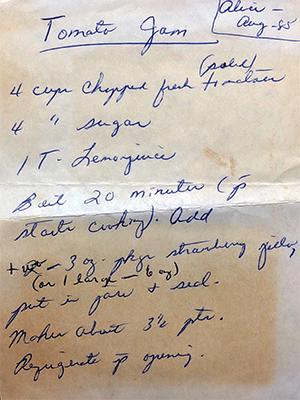 Alice -
Aug - 85
Tomato Jam
(solid)
4 cups chopped fresh tomatoes
4 " sugar
1 T. Lemonjuice
Boil 20 minutes (p̄
starts cooking). Add
two - 3 oz. pkgs strawberry jello,
(or 1 large - 6 oz)
put in jars & seal.
Makes about 3½ pts.
Refrigerate p̄ opening.